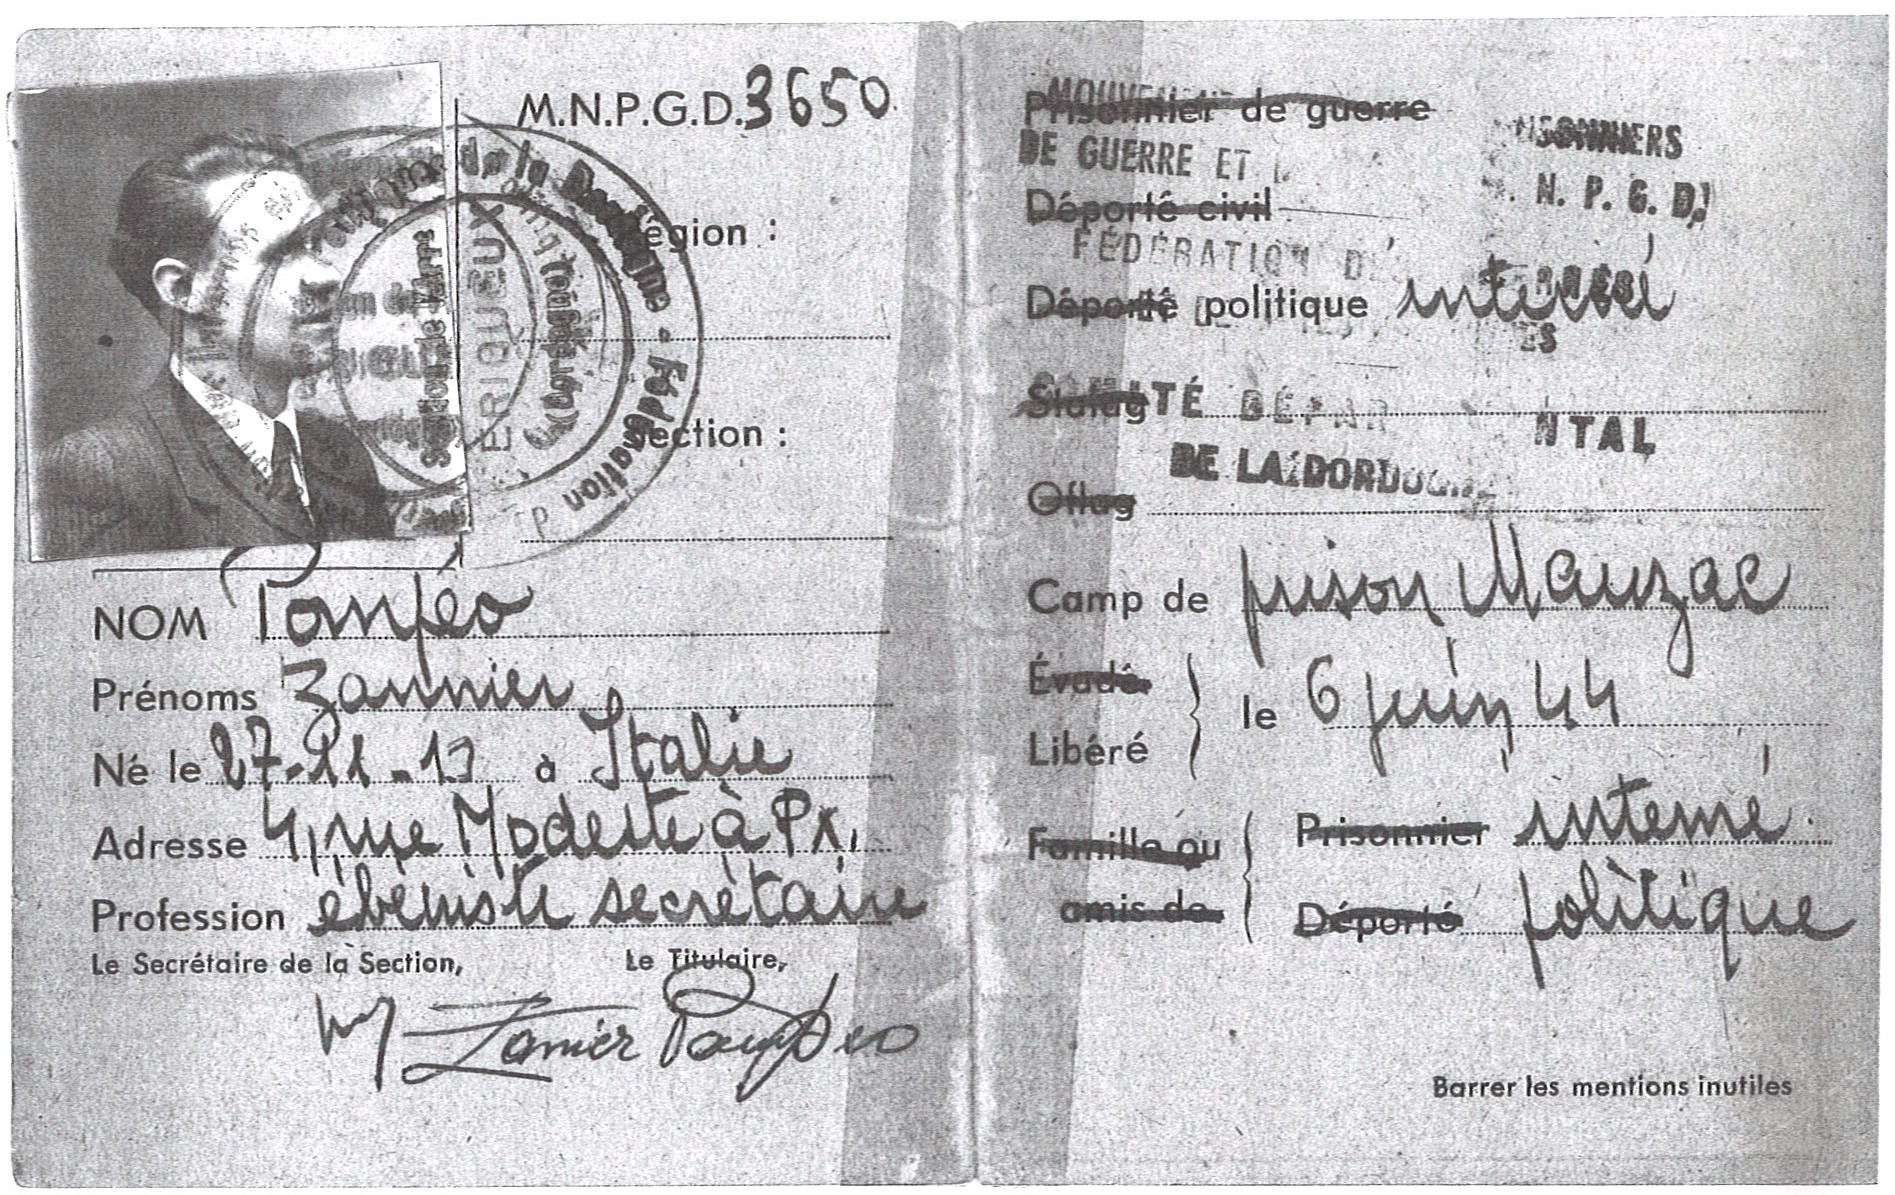 M.N.P.G.D. 3650
Région :
Section :
de la Dordogne - Fédération
PERIGUEUX
NOM Pompéo
Prénoms Zannier
Né le 27-11-13 à Italie
Adresse 4, rue Modeste à Px,
Profession ébéniste secrétaire
Le Secrétaire de la Section, Le Titulaire,
Zanier Pompeo
MOUVEMENT
Prisonnier de guerre
PRISONNIERS
DE GUERRE ET
N. P. G. D.
Déporté civil
FÉDÉRATION
Déporté politique interné
Stalag
COMITÉ DÉPARTEMENTAL
DE LA DORDOGNE
Oflag
Camp de prison Mauzac
Évadé
Libéré
le 6 juin 44
Famille ou
amis de
Prisonnier interné
Déporté politique
Barrer les mentions inutiles